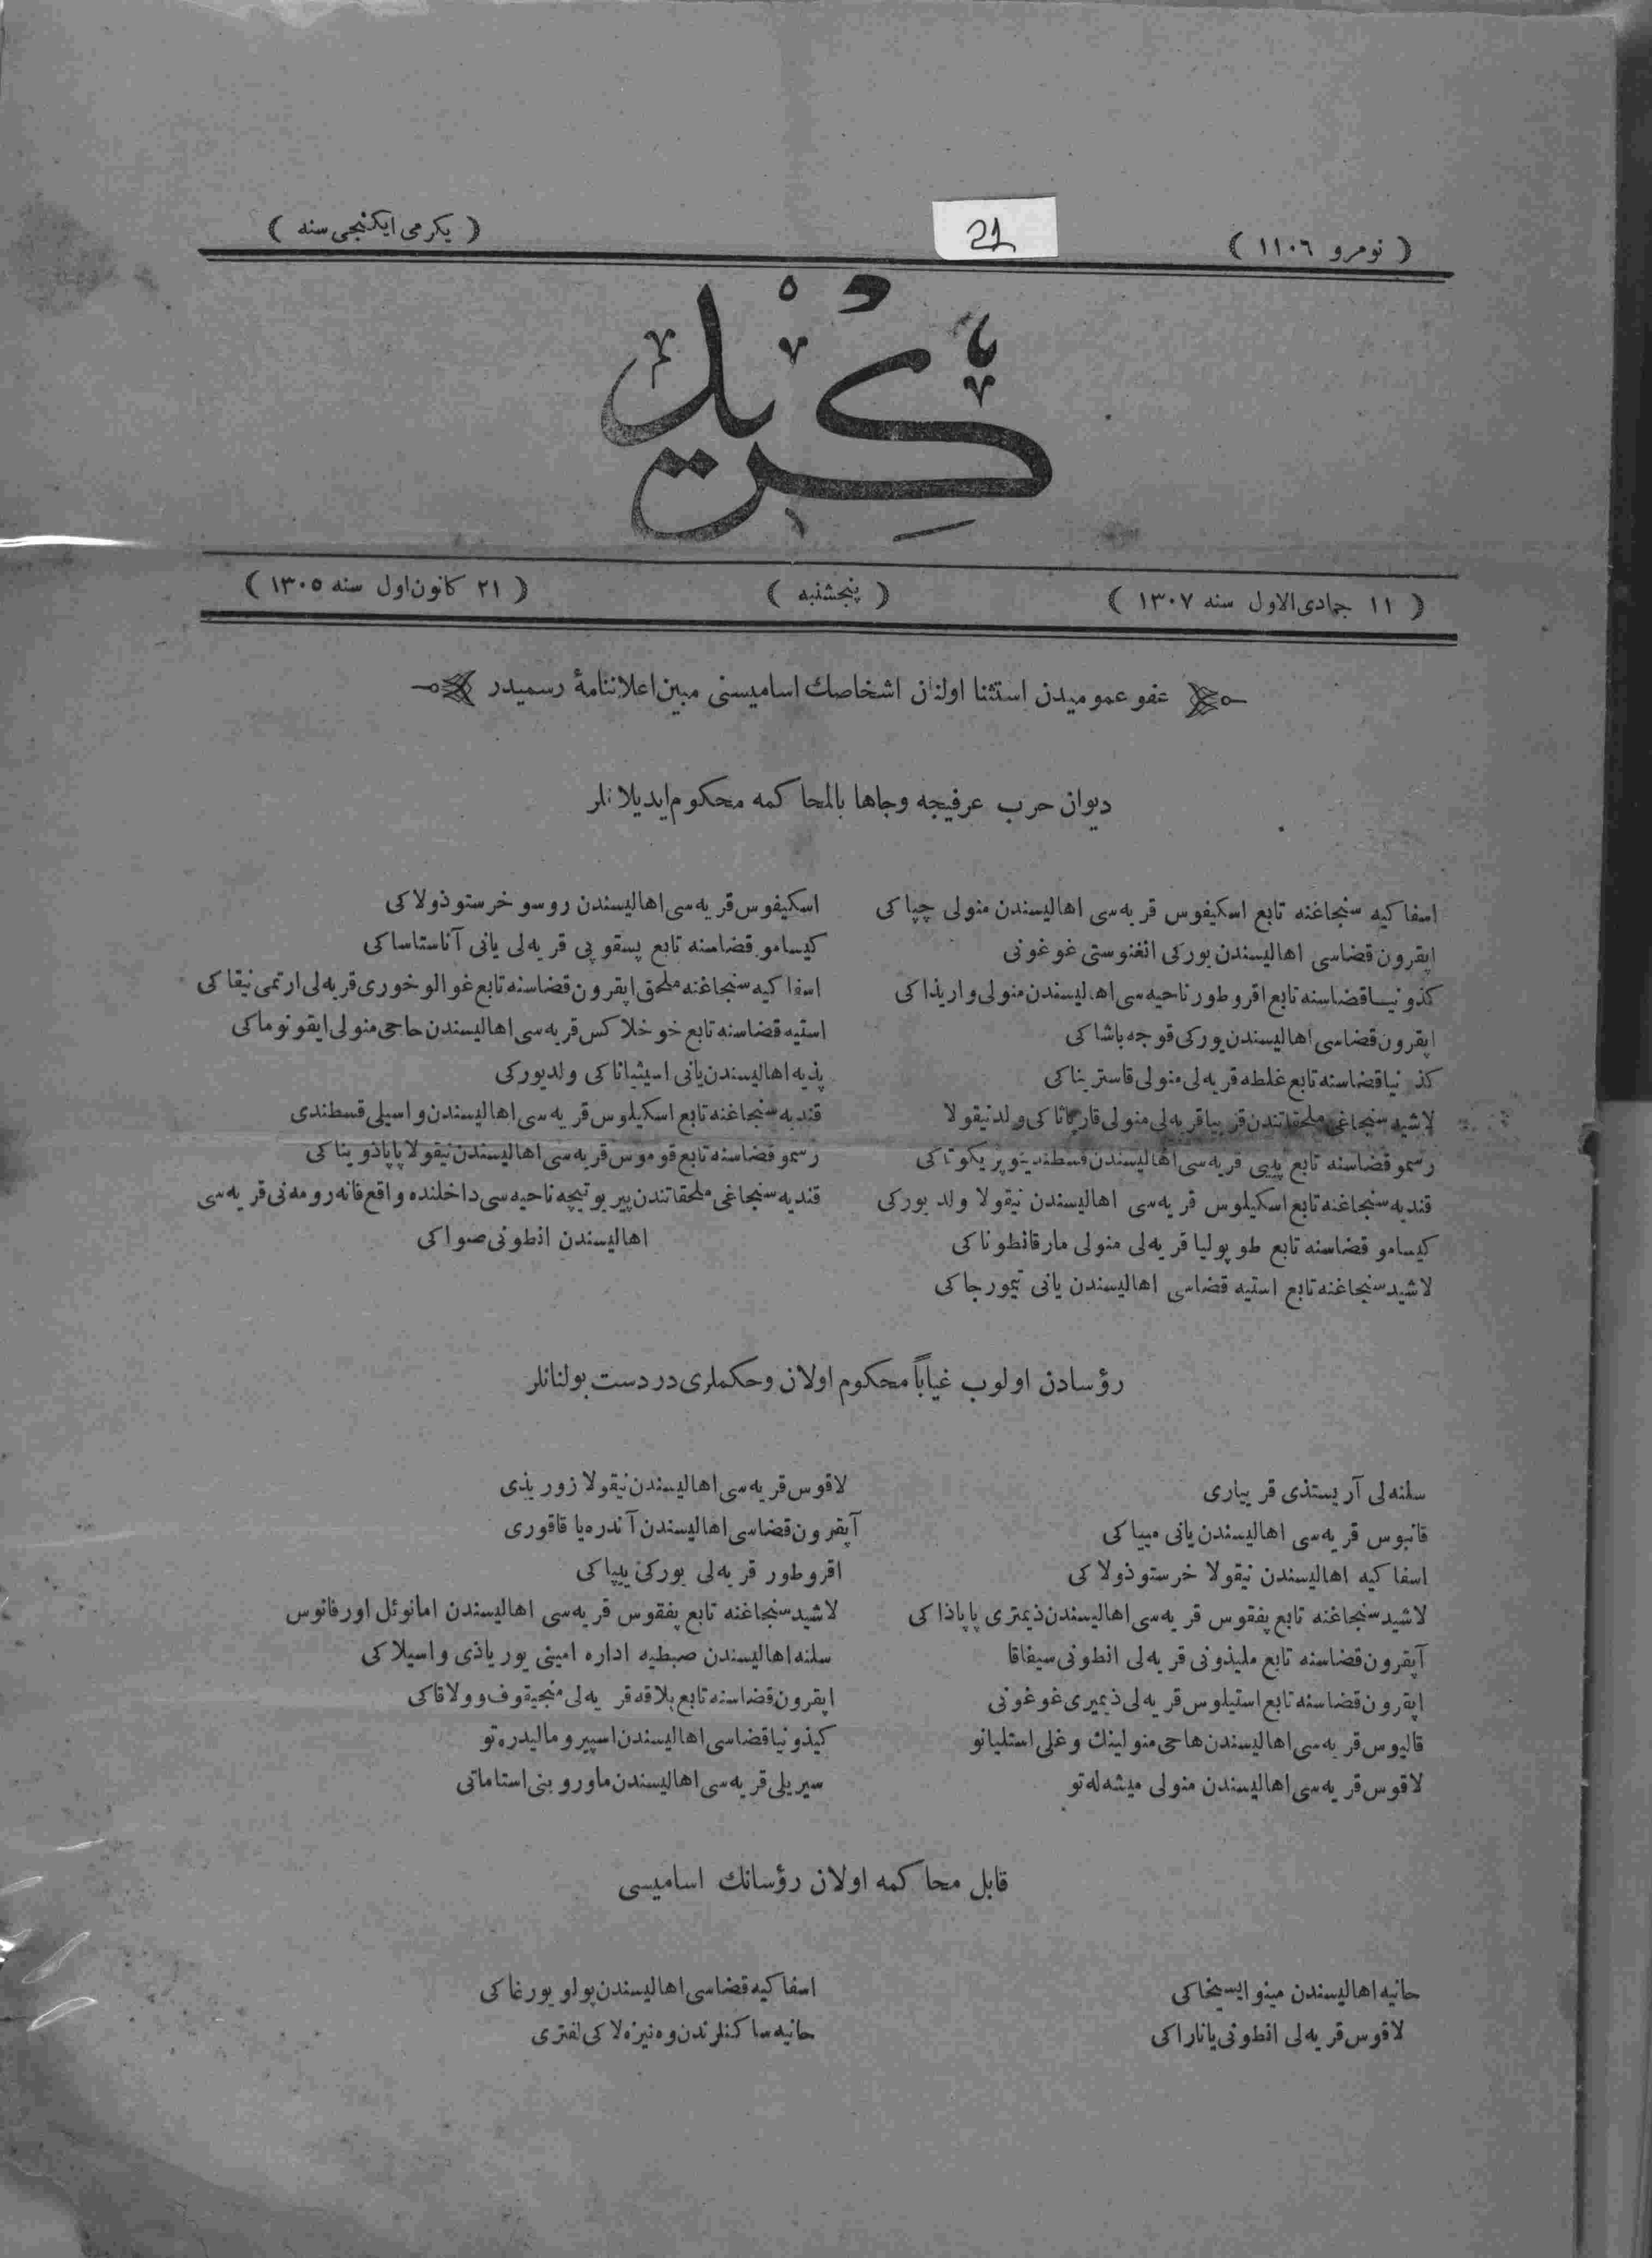 ( نومرو ١١٠٦ )
21
( يكرمى ايكنجى سنه )
كريد
( ١١ جمادى الاول سنه ١٣٠٧ )
( پنجشنبه )
( ٢١ كانون اول سنه ١٣٠٥ )
عفو عموميدن استثنا اولنان اشخاصك اساميسنى مبين اعلاننامهٔ رسميدر
ديوان حرب عرفيجه وجاها بالمحاكمه محكوم ايديلانلر
اسفاكيه سنجاغنه تابع اسكيفوس قريه سى اهاليسندن منولى چپاكى
اپقرون قضاسى اهاليسندن يوركى انغنوستى غوغونى
كذونيا قضاسنه تابع اقروطور ناحيه سى اهاليسندن منولى واريذاكى
اپقرون قضاسى اهاليسندن يوركى قوجه باشاكى
كذونيا قضاسنه تابع غلطه قريه لى منولى قاستريناكى
لاشيد سنجاغى ملحقاتندن قريه لى منولى ولد نيقولا
رسمو قضاسنه تابع قريه سى اهاليسندن
قنديه سنجاغنه تابع اسكيلوس قريه سى اهاليسندن نيقولا ولد يوركى
كيسامو قضاسنه تابع طوپوليا قريه لى منولى مارقانطوناكى
لاشيد سنجاغنه تابع استيه قضاسى اهاليسندن يانى تيمورجاكى
اسكيفوس قريه سى اهاليسندن روسو خرستوذولاكى
كيسامو قضاسنه تابع پسقوپى قريه لى يانى آناستاساكى
اسفاكيه سنجاغنه ملحق اپقرون قضاسنه تابع غوالوخورى قريه لى ارتمى نيقاكى
استيه قضاسنه تابع خوخلاكس قريه سى اهاليسندن حاجى منولى ايقونوماكى
پذيه اهاليسندن يانى اسيثياناكى ولد يوركى
قنديه سنجاغنه تابع اسكيلوس قريه سى اهاليسندن واسيلى قسطندى
رسمو قضاسنه تابع قوموس قريه سى اهاليسندن نيقولا پاپاذويناكى
قنديه سنجاغى ملحقاتندن پيريوتيچه ناحيه سى داخلنده واقع فانه رومه نى قريه سى
اهاليسندن انطونى صواكى
رؤسادن اولوب غياباً محكوم اولان وحكملرى دردست بولنانلر
سلنه لى آريستذى قريبارى
قانبوس قريه سى اهاليسندن يانى مپياكى
اسفاكيه اهاليسندن نيقولا خرستوذولاكى
لاشيد سنجاغنه تابع پفقوس قريه سى اهاليسندن ذيمترى پاپاذاكى
آپقرون قضاسنه تابع مليذونى قريه لى انطونى سيفاقا
اپقرون قضاسنه تابع استيلوس قريه لى ذيميرى غوغونى
قاليوس قريه سى اهاليسندن هاجى منولينك وغلى استليانو
لاقوس قريه سى اهاليسندن منولى ميشه له تو
لاقوس قريه سى اهاليسندن نيقولا زوريذى
آپقرون قضاسى اهاليسندن آندره يا قاقورى
اقروطور قريه لى يوركى پيپاكى
لاشيد سنجاغنه تابع پفقوس قريه سى اهاليسندن امانوئل اورفانوس
سلنه اهاليسندن ضبطيه اداره امينى يورياذى واسيلاكى
اپقرون قضاسنه تابع پلاقه قريه لى منجيقوف وولاقاكى
كيذونيا قضاسى اهاليسندن اسپيرو ماليدره تو
سيريلى قريه سى اهاليسندن ماورو بنى استاماتى
قابل محاكمه اولان رؤسانك اساميسى
حانيه اهاليسندن مينو ايسيخاكى
لاقوس قريه لى انطونى ياناراكى
اسفاكيه قضاسى اهاليسندن پولو يورغاكى
حانيه ساكنلرندن وه نيزه لاكى لفترى